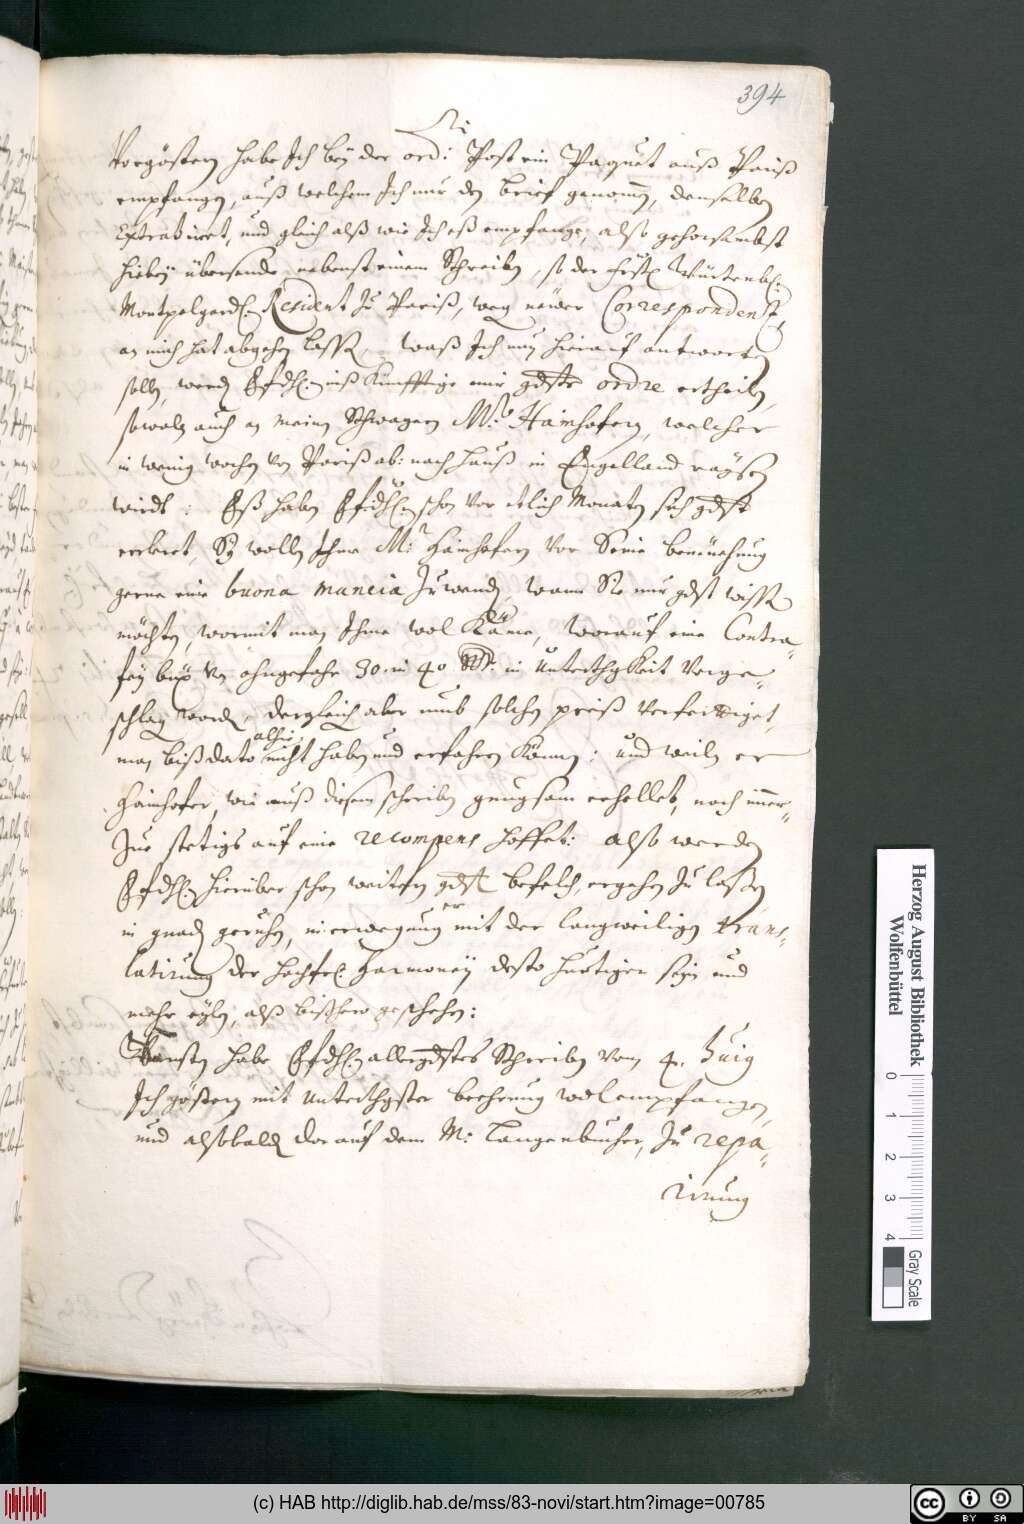 394
Vorgöstern habe Ich beÿ der ord.ri Post ein Paquet auß Pariß
empfangen, auß welchem Ich nur den brief genom̄en, denselben
Extrahirt, und gleich alß wie Ich eß empfange, also gehorsambst
hiebeÿ übersende, nebenst einem Schreiben, so der Fürstl. Würtenb.
Montpelgard. Resident zu Pariß, weg. newer Correspondentz
an mich hat abgehen lassen, waß Ich nun hierauf antworten
solle, werden EfDhl. inß künfftige mir gdste ordre ertheilen,
sowoln auch an meinen Schwagern Mr. Hainhofern, welcher
in wenig wochen von Pariß ab: nach hauß in Engelland raÿsen
wirdt: Eß haben EfDhl. schon vor etlich Monaten sich gdst
erclert, Sie wollen Ihme Mr. Hainhofern vor Seine bemüehung
gerne eine buona mancia zuwenden, wann Sie nur gdst wissen
möchten, wormit man Ihme wol käme, worauf eine Contra-
feÿ büx von ohngefehr 30. in 40 Rthr. in unterthgkeit vorge-
schlagen worden, dergleichen aber umb solchen preiß verfertiget,
man biß dato alhie nicht haben und erfahren können: und weiln er
Hainhofer, wie auß diesem schreiben genugsam erhellet, noch im̄er-
zue stetigs auf eine recompens hoffet: alß werden
EfDhl. hierüber schon weitern gdst befelch, ergehen zu laßen
in gnaden geruhen, in erwegung er mit der langweiligen trans-
latirung der hochfrl. Harmoneÿ desto hurtiger sein und
mehr eÿlen, alß bißhero geschehen:
Sonsten habe EfDhl. allergdstes Schreiben vom 4. Juig
Ich göstern mit unterthgster beehrung wol empfangen,
und alßbalden darauf dem M: Langenbucher, zu repa-
rirung
Herzog August Bibliothek
Wolfenbüttel
0 1 2 3 4
Gray Scale
(c) HAB http://diglib.hab.de/mss/83-novi/start.htm?image=00785
cc BY SA